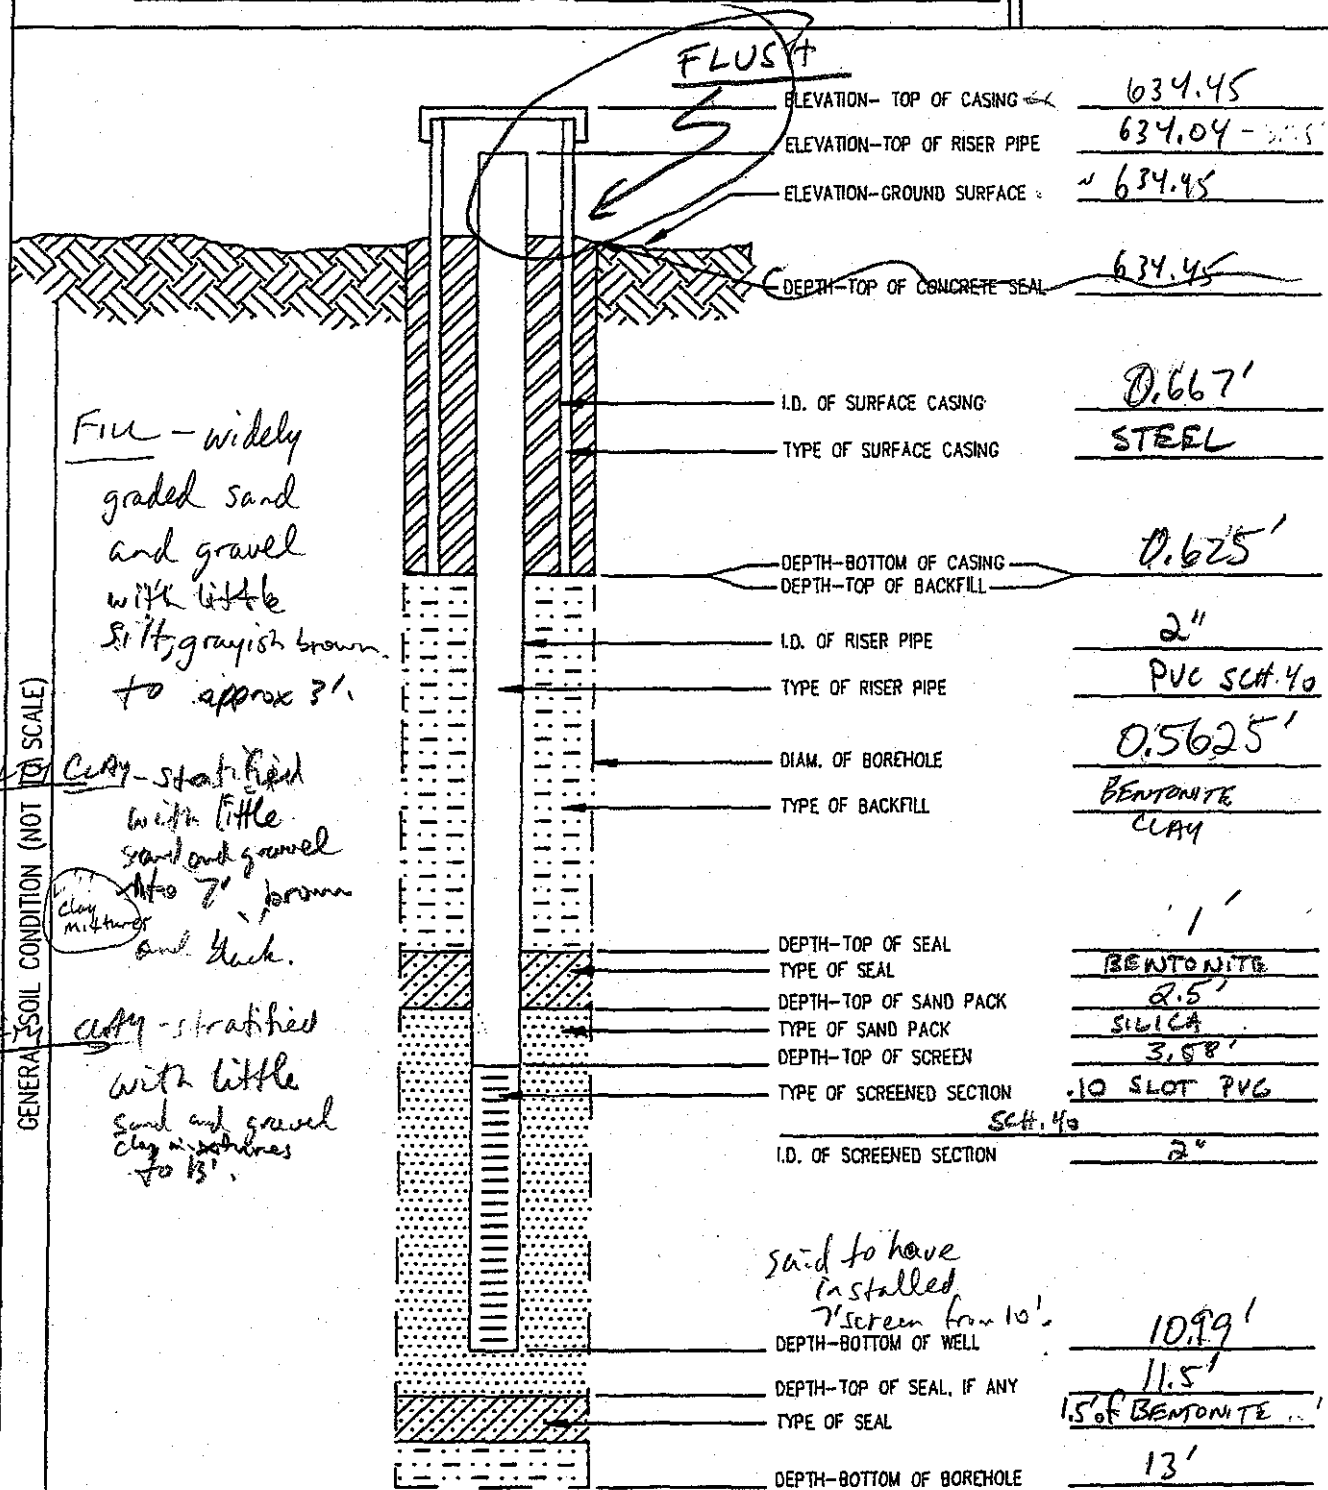 FLUSH
ELEVATION- TOP OF CASING 634.45
ELEVATION-TOP OF RISER PIPE 634.04
ELEVATION-GROUND SURFACE ~ 634.45
DEPTH-TOP OF CONCRETE SEAL 634.45
I.D. OF SURFACE CASING 0.667'
TYPE OF SURFACE CASING STEEL
DEPTH-BOTTOM OF CASING 0.625'
DEPTH-TOP OF BACKFILL
I.D. OF RISER PIPE 2"
TYPE OF RISER PIPE PVC SCH. 40
DIAM. OF BOREHOLE 0.5625'
TYPE OF BACKFILL BENTONITE
CLAY
DEPTH-TOP OF SEAL 1'
TYPE OF SEAL BENTONITE
DEPTH-TOP OF SAND PACK 2.5'
TYPE OF SAND PACK SILICA
DEPTH-TOP OF SCREEN 3.58'
TYPE OF SCREENED SECTION .10 SLOT PVC
SCH. 40
I.D. OF SCREENED SECTION 2"
said to have
installed
7' screen from 10'.
DEPTH-BOTTOM OF WELL 10.99'
DEPTH-TOP OF SEAL, IF ANY 11.5'
TYPE OF SEAL 1.5' of BENTONITE
DEPTH-BOTTOM OF BOREHOLE 13'
GENERAL SOIL CONDITION (NOT TO SCALE)
FILL - widely
graded sand
and gravel
with little
silt, grayish brown.
to approx 3'.
CLAY - stratified
with little
sand and gravel
to 7', brown
clay
mixtures
and black.
CLAY - stratified
with little
sand and gravel
clay mixtures
to 13'.